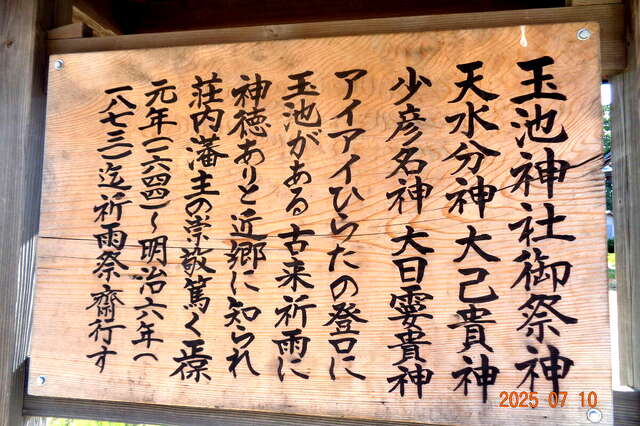 玉池神社御祭神
天水分神 大己貴神
少彦名神 大日孁貴神
アイアイひらたの登口に
玉池がある 古来祈雨に
神徳ありと近郷に知られ
荘内藩主の崇敬篤く正保
元年(一六四四)~明治六年(
一八七三)迄祈雨祭齋行す
2025 07 10